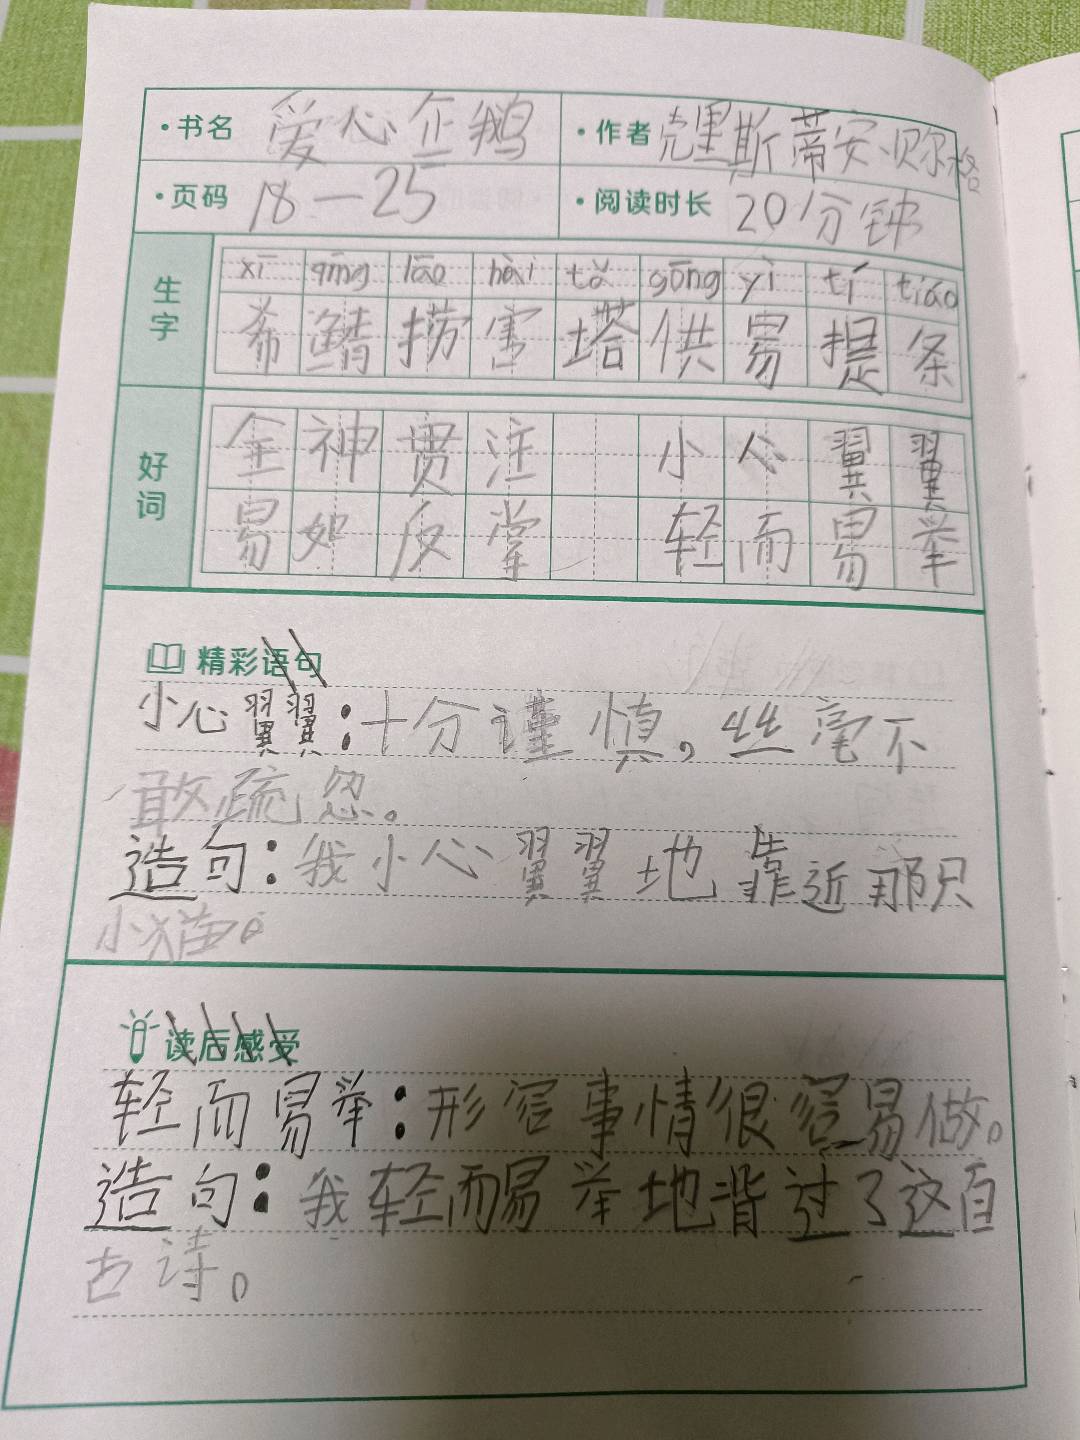 ·书名 爱心企鹅 ·作者 克里斯蒂安·贝尔格
·页码 18—25 ·阅读时长 20分钟
生字
xī qīng lāo hài tǎ gōng yì tí tiáo
希 鲭 捞 害 塔 供 易 提 条
好词
全神贯注 小心翼翼
易如反掌 轻而易举
精彩语句
小心翼翼：十分谨慎，丝毫不
敢疏忽。
造句：我小心翼翼地靠近那只
小猫。
读后感受
轻而易举：形容事情很容易做。
造句：我轻而易举地背过了这百
古诗。